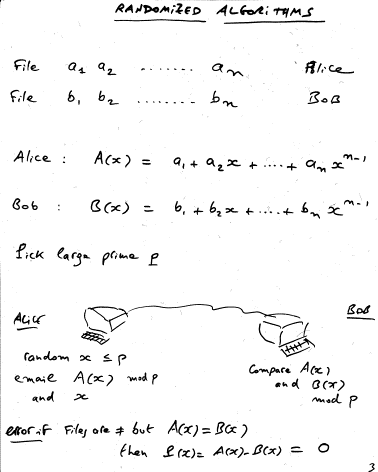 RANDOMIZED ALGORITHMS
File a₁ a₂ ....... aₙ Alice
File b₁ b₂ ........ bₙ BOB
Alice : A(x) = a₁ + a₂x + .... + aₙ xⁿ⁻¹
Bob : B(x) = b₁ + b₂x + .... + bₙ xⁿ⁻¹
Pick large prime p
ALICE BOB
random x ≤ p
email A(x) mod p
and x
Compare A(x)
and B(x)
mod p
error if Files are ≠ but A(x) = B(x)
then P(x) = A(x) - B(x) = 0
3